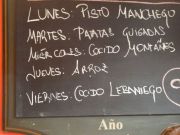 LUNES: PISTO MANCHEGO
MARTES: PATATAS GUISADAS
MIÉRCOLES: COCIDO MONTAÑES
JUEVES: ARROZ
VIERNES: COCIDO LEBANIEGO
Año